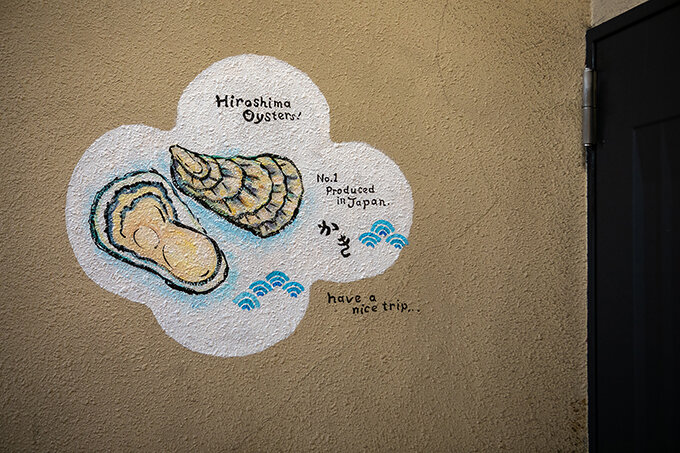 Hiroshima
Oysters!
No.1
Produced
in Japan.
かき
have a
nice trip...